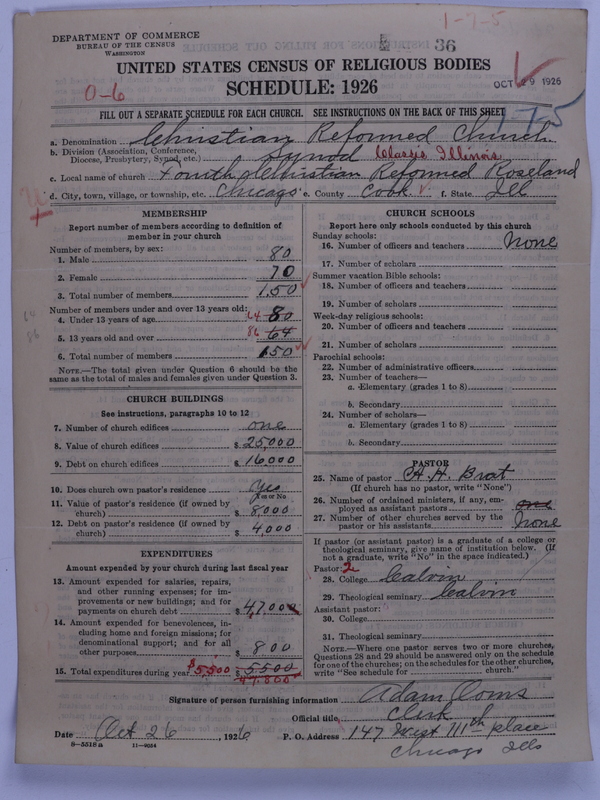 1-7-5
DEPARTMENT OF COMMERCE
BUREAU OF THE CENSUS
WASHINGTON
36
UNITED STATES CENSUS OF RELIGIOUS BODIES
SCHEDULE: 1926
OCT 29 1926
0-6
FILL OUT A SEPARATE SCHEDULE FOR EACH CHURCH. SEE INSTRUCTIONS ON THE BACK OF THIS SHEET
a. Denomination Christian Reformed Church
b. Division (Association, Conference, Diocese, Presbytery, Synod, etc.) Synod Classis Illinois
c. Local name of church Fourth Christian Reformed Roseland
d. City, town, village, or township, etc. Chicago e. County Cook f. State Ill
MEMBERSHIP
Report number of members according to definition of
member in your church
Number of members, by sex:
1. Male 80
2. Female 70
3. Total number of members 150
Number of members under and over 13 years old:
4. Under 13 years of age 64 80
5. 13 years old and over 86 64
6. Total number of members 150
64
86
NOTE.—The total given under Question 6 should be the
same as the total of males and females given under Question 3.
CHURCH BUILDINGS
See instructions, paragraphs 10 to 12
7. Number of church edifices one
8. Value of church edifices $ 25,000
9. Debt on church edifices $ 16,000
10. Does church own pastor's residence Yes
Yes or No
11. Value of pastor's residence (if owned by
church) $ 8000
12. Debt on pastor's residence (if owned by
church) $ 4,000
EXPENDITURES
Amount expended by your church during last fiscal year
13. Amount expended for salaries, repairs,
and other running expenses; for im-
provements or new buildings; and for
payments on church debt $ 47000
14. Amount expended for benevolences, in-
cluding home and foreign missions; for
denominational support; and for all
other purposes $ 800
15. Total expenditures during year $5500 5500
47.800
CHURCH SCHOOLS
Report here only schools conducted by this church
Sunday schools:
16. Number of officers and teachers None
17. Number of scholars
Summer vacation Bible schools:
18. Number of officers and teachers
19. Number of scholars
Week-day religious schools:
20. Number of officers and teachers
21. Number of scholars
Parochial schools:
22. Number of administrative officers
23. Number of teachers—
a. Elementary (grades 1 to 8)
b. Secondary
24. Number of scholars—
a. Elementary (grades 1 to 8)
b. Secondary
PASTOR
25. Name of pastor H. H. Brat
(If church has no pastor, write "None")
26. Number of ordained ministers, if any, em-
ployed as assistant pastors one
27. Number of other churches served by the
pastor or his assistants None
If pastor (or assistant pastor) is a graduate of a college or
theological seminary, give name of institution below. (If
not a graduate, write "No" in the space indicated.)
Pastor: 2
28. College Calvin
29. Theological seminary Calvin
Assistant pastor:
30. College
31. Theological seminary
NOTE.—Where one pastor serves two or more churches,
Questions 28 and 29 should be answered only on the schedule
for one of the churches; on the schedules for the other churches,
write "See schedule for church."
Signature of person furnishing information Adam Ooms
Official title Clerk
Date Oct 26, 1926 P. O. Address 147 West 111th place
8—5518 a 11—9054
Chicago Ills